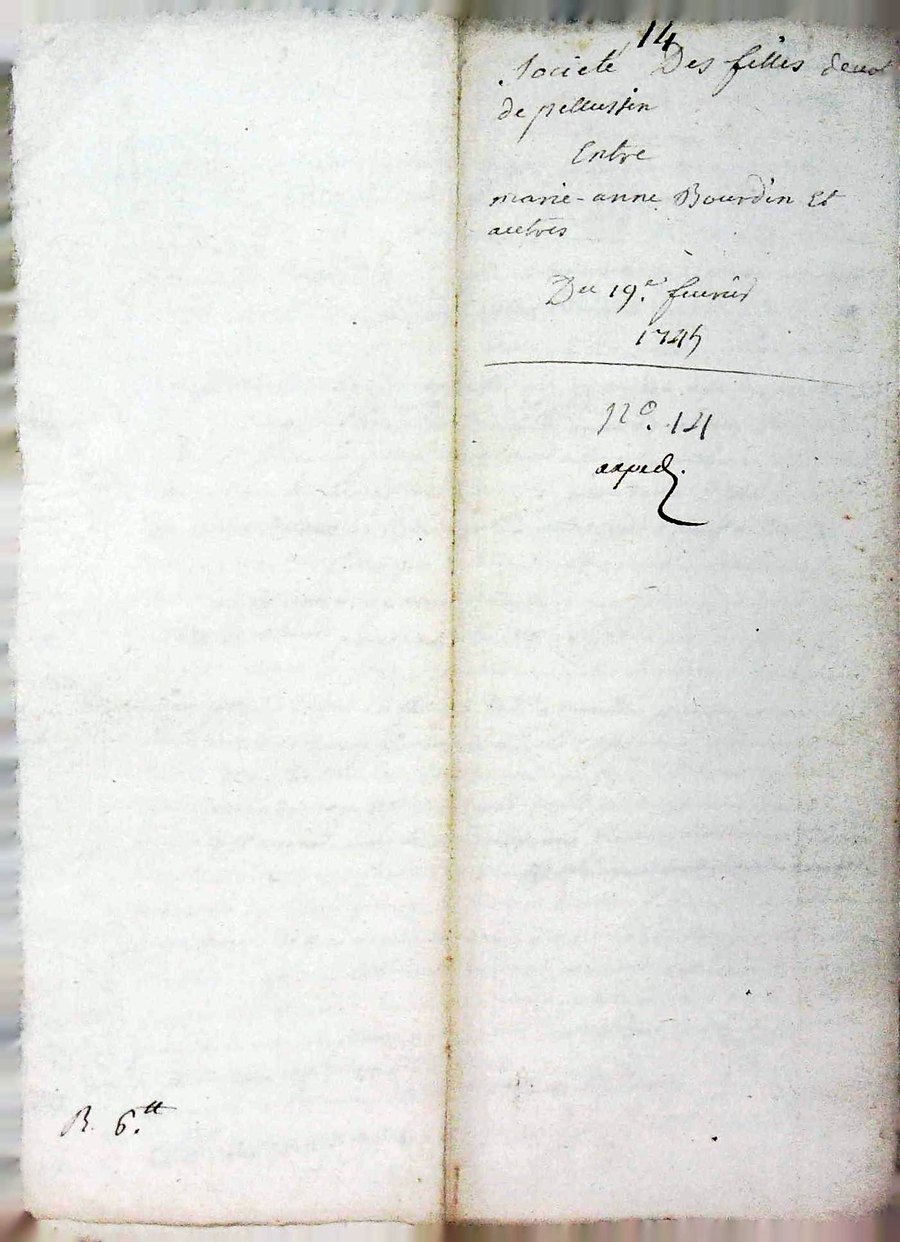 14
Societé Des filles devot
de pellussin
Entre
marie-anne Bourdin Et
autres
Du 19.e fevrier
1745
No. 14
expéd.
R. 6.tt